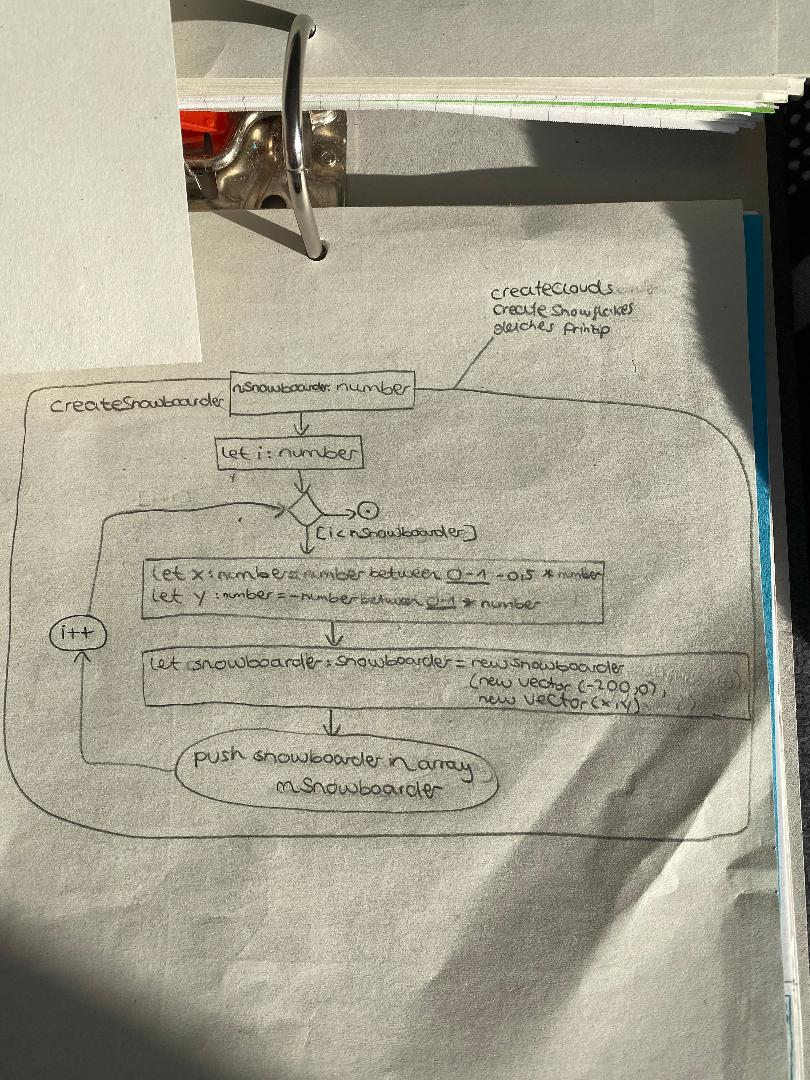 createClouds
create Snowflakes
gleiches Prinzip
createSnowboarder
nSnowboarder: number
let i: number
[i < nSnowboarder]
let x: number = number between 0-1 -0,5 * number
let y: number = -number between 0-1 * number
i++
let snowboarder: snowboarder = new snowboarder
(new vector (-200,0),
new vector (x,y)
push snowboarder in array
nSnowboarder